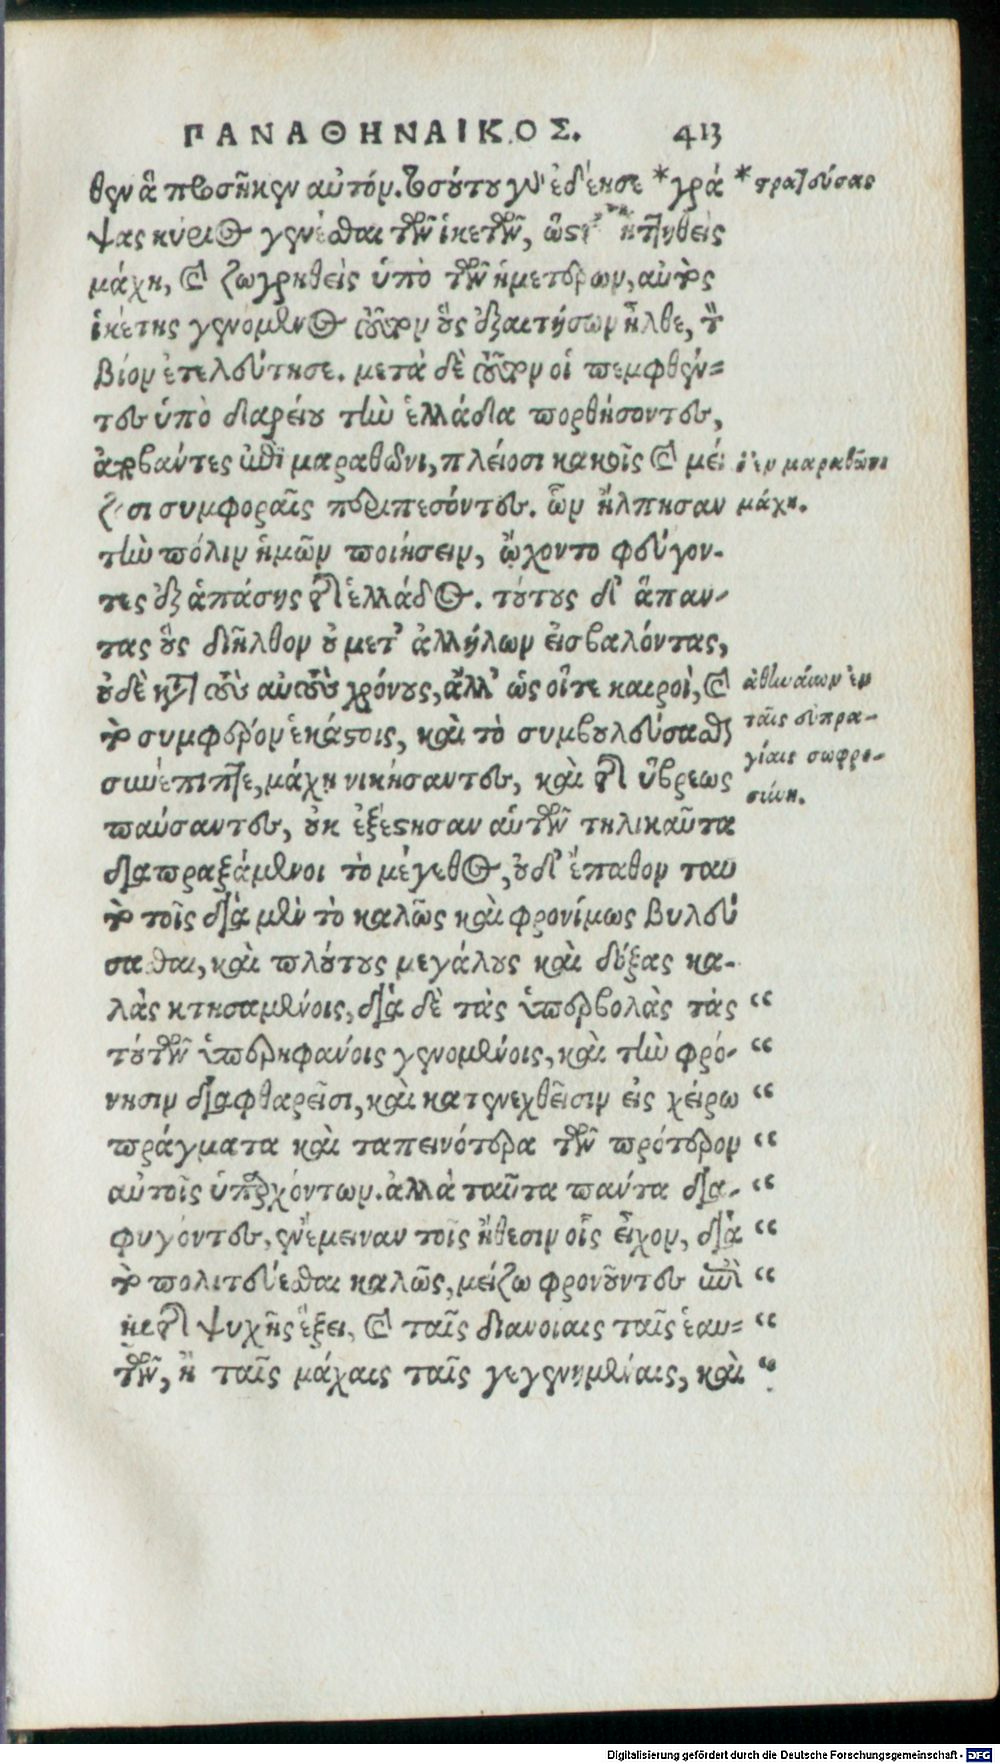 ΠΑΝΑΘΗΝΑΙΚΟΣ. 413
θεν ἃ προσῆκεν αὐτόν. τοσούτου γὰρ ἐδέησε *γρά
ψας κύριος γενέσθαι τῶν ἱκετῶν, ὥστε ἡττηθεὶς
μάχῃ, καὶ ζωγρηθεὶς ὑπὸ τῶν ἡμετέρων, αὐτὸς
ἱκέτης γενόμενος τούτων οὓς ἐξαιτήσων ἦλθε, τὸν
βίον ἐτελεύτησε. μετὰ δὲ τοῦτον οἱ πεμφθέν=
τες ὑπὸ δαρείου τὴν ἑλλάδα πορθήσοντες,
ἀποβάντες ἐπὶ μαραθῶνι, πλείοσι κακοῖς καὶ μεί
ζοσι συμφοραῖς περιπεσόντες. ὧν ἤλπησαν
τὴν πόλιν ἡμῶν ποιήσειν, ᾤχοντο φεύγον-
τες ἐξ ἁπάσης τῆς ἑλλάδος. τούτους δ' ἅπαν-
τας οὓς διῆλθον οὐ μετ' ἀλλήλων εἰσβαλόντας,
οὐδὲ κατὰ τοὺς αὐτοὺς χρόνους, ἀλλ' ὡς οἵ τε καιροὶ, καὶ
τὸ συμφέρον ἑκάστοις, καὶ τὸ συμβουλεύσασθαι
συνέπιπτε, μάχῃ νικήσαντες, καὶ τῆς ὕβρεως
παύσαντες, οὐκ ἐξέστησαν αὑτῶν τηλικαῦτα
διαπραξάμενοι τὸ μέγεθος, οὐδ' ἔπαθον ταυ
τὸ τοῖς διὰ μὲν τὸ καλῶς καὶ φρονίμως βουλεύ
σασθαι, καὶ πλούτους μεγάλους καὶ δόξας κα-
λὰς κτησαμένοις, διὰ δὲ τὰς ὑπερβολὰς τὰς “
τούτων ὑπερηφάνοις γενομένοις, καὶ τὴν φρό- “
νησιν διαφθαρεῖσι, καὶ κατενεχθεῖσιν εἰς χείρω “
πράγματα καὶ ταπεινότερα τῶν πρότερον “
αὐτοῖς ὑπαρχόντων. ἀλλὰ ταῦτα πάντα δια- “
φυγόντες, ἐνέμειναν τοῖς ἤθεσιν οἷς εἶχον, διὰ “
τὸ πολιτεύεσθαι καλῶς, μείζω φρονοῦντες ἐπὶ “
τῇ τῆς ψυχῆς ἕξει, καὶ ταῖς διανοίαις ταῖς ἑαυ= “
τῶν, ἢ ταῖς μάχαις ταῖς γεγενημέναις, καὶ “
*προστάξας
ἡ ἐν μαραθῶνι
μάχη.
ἀθηναίων ἐν
ταῖς εὐπρα-
γίαις σωφρο-
σύνη.
Digitalisierung gefördert durch die Deutsche Forschungsgemeinschaft - DFG